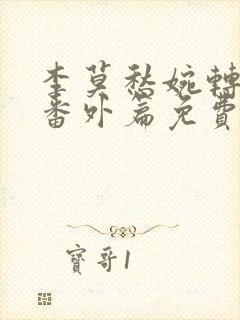 李莫愁婉轉
番外篇免費
寶哥1